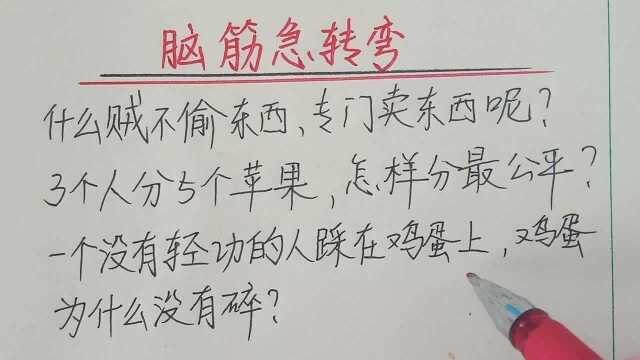 脑筋急转弯
什么贼不偷东西、专门卖东西呢?
3个人分5个苹果,怎样分最公平?
一个没有轻功的人踩在鸡蛋上,鸡蛋
为什么没有碎?